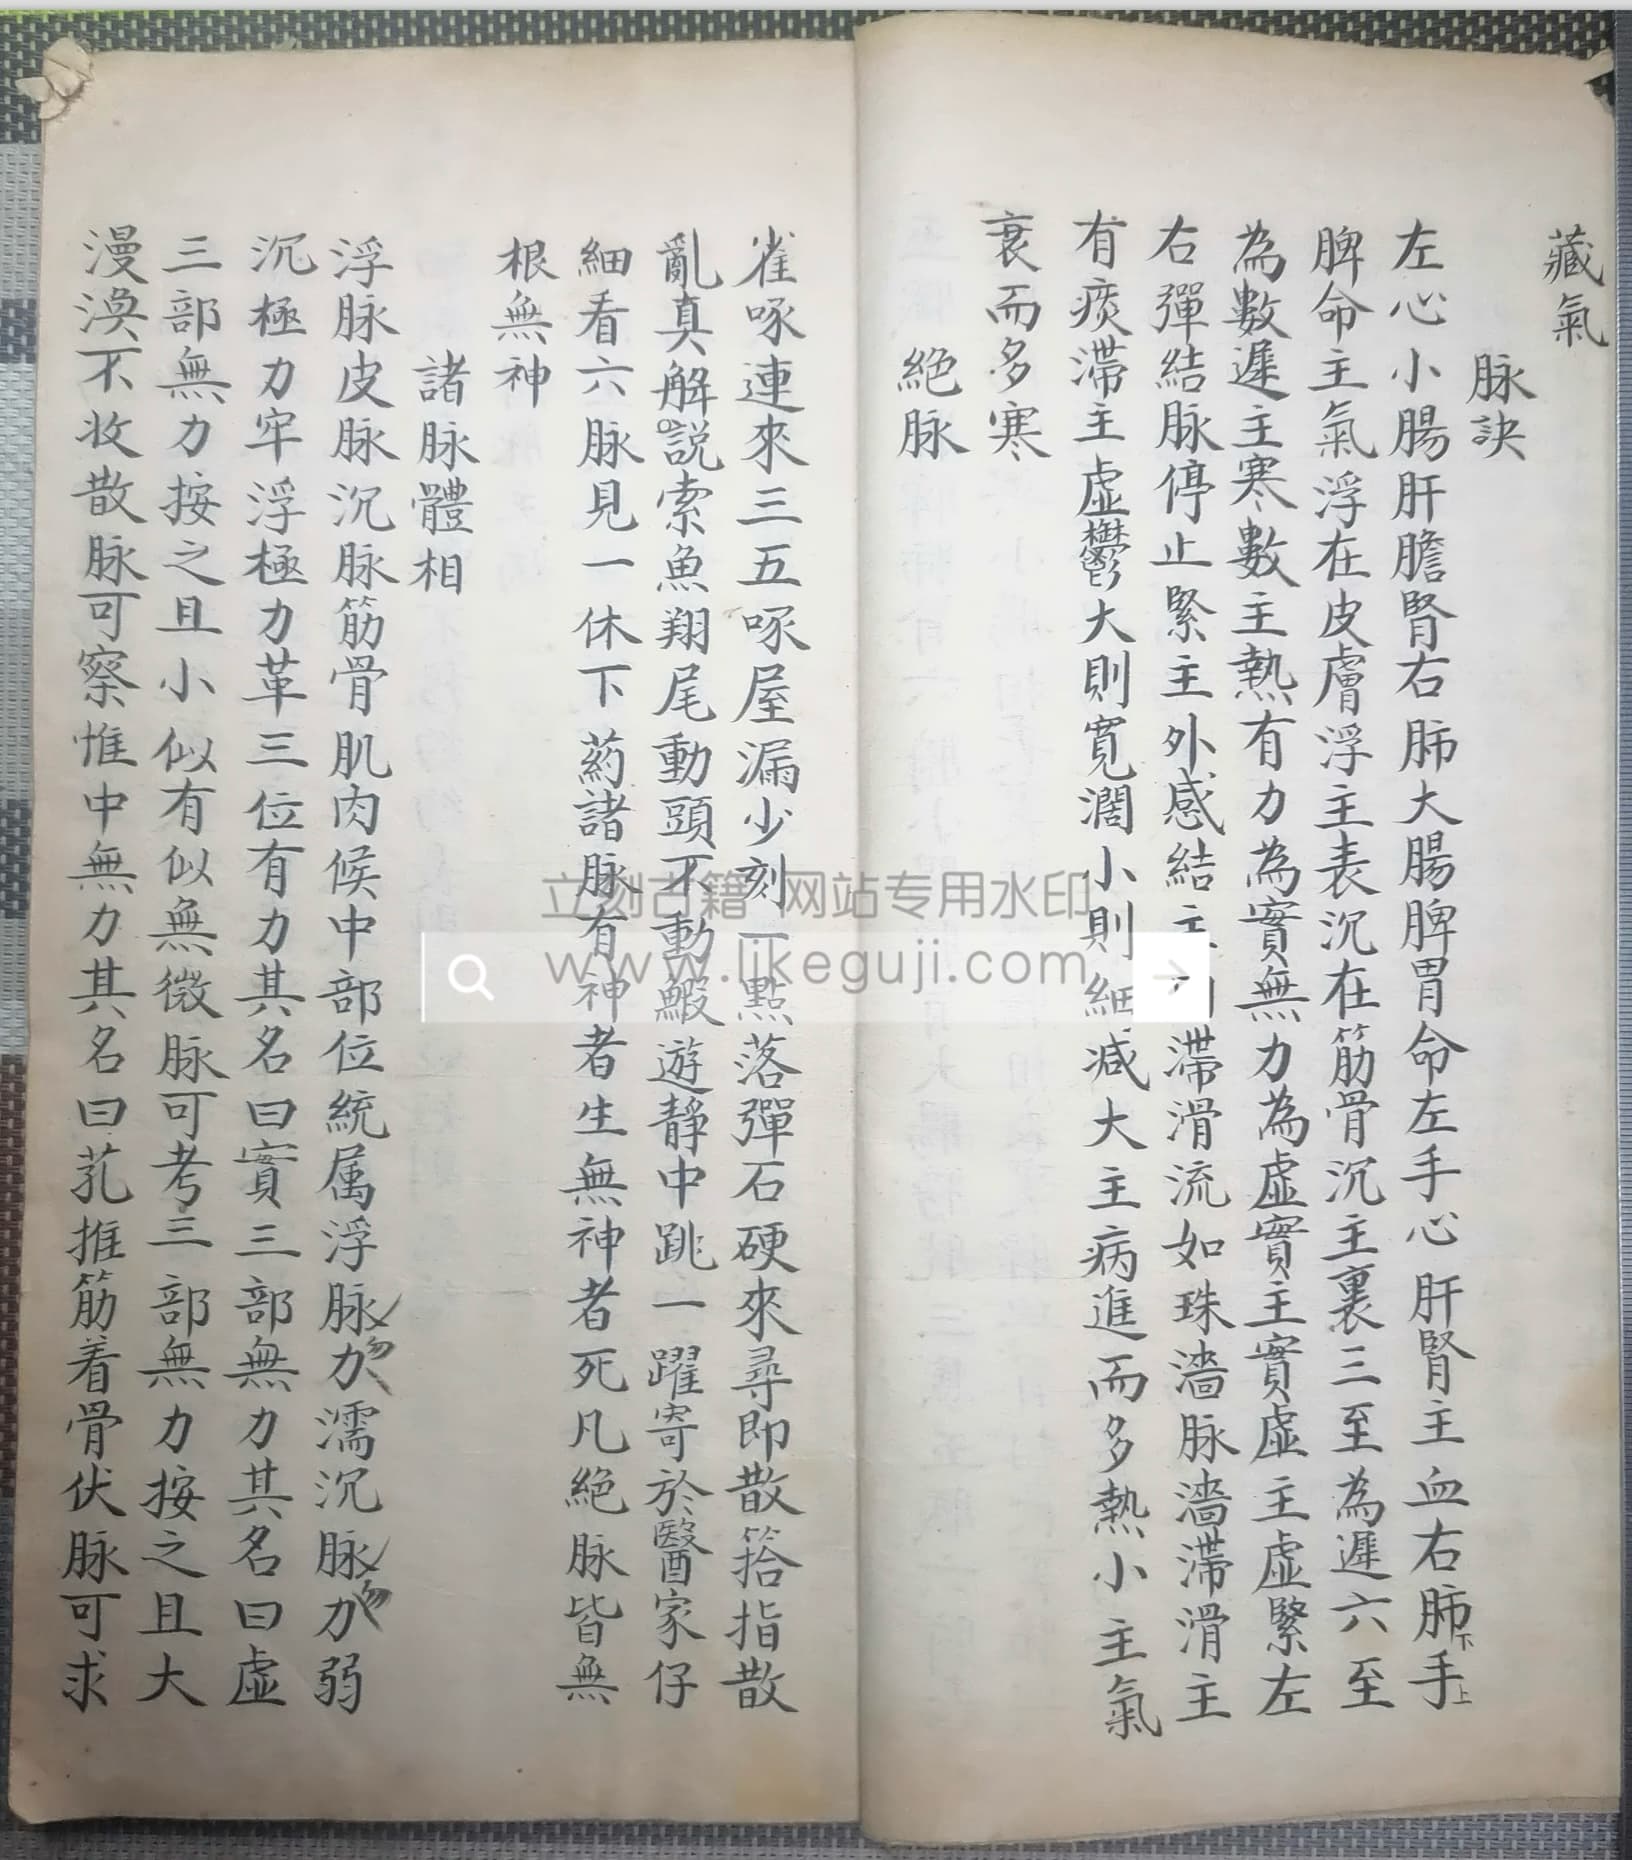 藏氣
脉訣
左心小腸肝膽腎右肺大腸脾胃命左手心肝腎主血右肺下手上
脾命主氣浮在皮膚浮主表沉在筋骨沉主裏三至為遲六至
為數遲主寒數主熱有力為實無力為虛實主實虛主虛緊左
右彈結脉停止緊主外感結主 滯滑流如珠濇脉濇滯滑主
有痰滯主虛鬱大則寬濶小則細减大主病進而多熱小主氣
衰而多寒
絶脉
雀啄連來三五啄屋漏少刻一點落彈石硬來尋即散箈指散
亂真解說索魚翔尾動頭不動鰕遊静中跳一躍寄於醫家仔
細看六脉見一休下葯諸脉有神者生無神者死凡絶脉皆無
根無神
諸脉體相
浮脉皮脉沉脉筋骨肌肉候中部位統属浮脉力濡沉脉力弱
沉極力牢浮極力革三位有力其名曰實三部無力其名曰虛
三部無力按之且小似有似無微脉可考三部無力按之且大
漫渙不收散脉可察惟中無力其名曰芤推筋着骨伏脉可求
立刻古籍 网站专用水印
www.likeguji.com